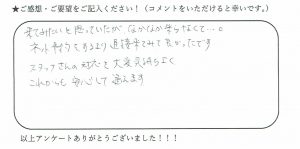 ★ご感想・ご要望をご記入ください！（コメントをいただけると幸いです。）
来てみたいと思っていたが なかなか来れなくて…。
ネット予約をするより 直接来てみて良かったです
スタッフさんの対応も大変気持ちよく
これからも 安心して通えます
以上アンケートありがとうございました！！！